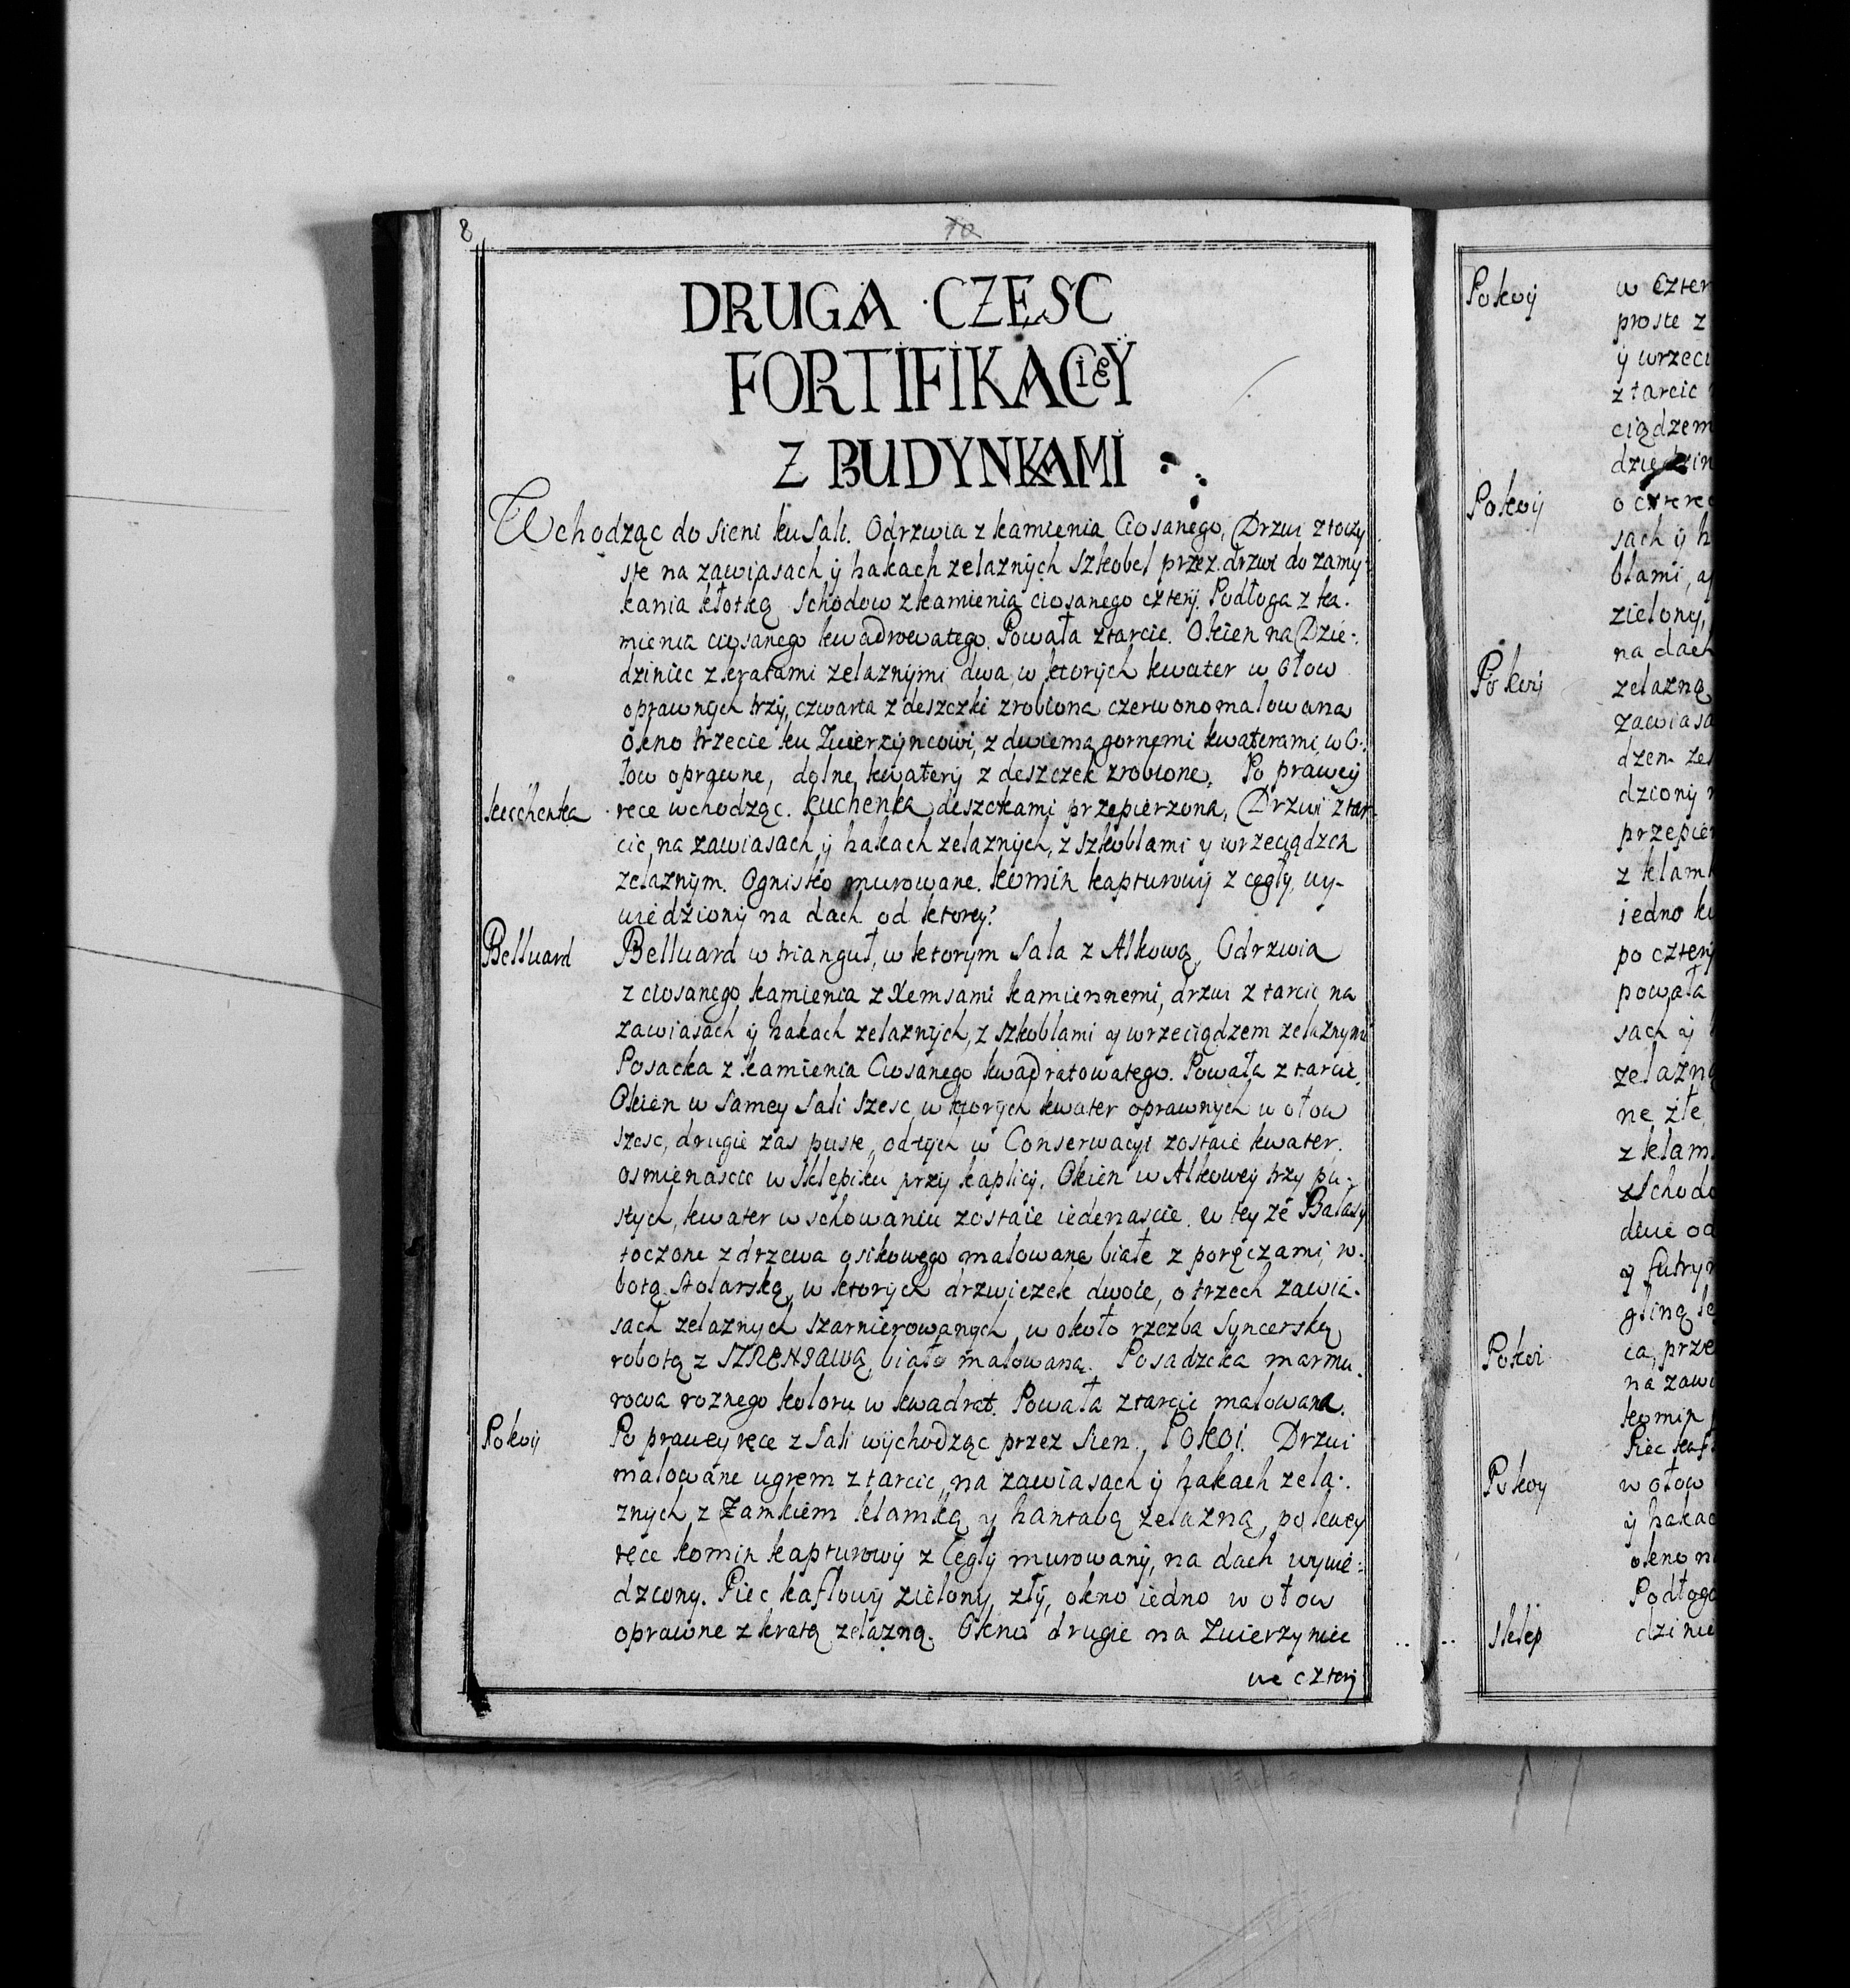 8
10
DRUGA CZESC
FORTIFIKACieY
Z BUDYNKAMI
Wchodząc do Sieni ku Sali. Odrzwia z kamienia Ciosanego, Drzwi
ste na zawiasach ÿ hakach zelaznÿch szkobel przez drzwi do zamÿ-
kania kłotką Schodow z kamienia ciosanego czterÿ. Podłoga z ka-
mienia ciosanego kwadrowatego. Powała z tarcic. Okien na Dzie-
dziniec z kratami zelaznÿmi dwa, w ktorÿch kwater w ołow
oprawnÿch trzÿ, czwarta z deszczki zrobiona czerwono malowana
Okno trzecie ku Zwierzÿncowi, z dwiema gornemi kwaterami, w O-
łow oprawne, dolne kwaterÿ z deszczek zrobione. Po prawey
Kuchenka
ręce wchodząc. Kuchenka deszczkami przepierzona, Drzwi z tar-
cic, na zawiasach ÿ hakach zelaznÿch, z szkoblami y wrzeciądzem
zelaznÿm. Ognisko murowane. Komin kapturowÿ z cegłÿ, wy-
wiedzionÿ na dach od ktorey?
Belluard
Belluard w trianguł, w ktorym Sala z Alkową, Odrzwia
z ciosanego kamienia z Xemsami kamiennemi, drzwi z tarcic na
zawiasach ÿ hakach zelaznÿch, z szkoblami y wrzeciądzem zelaznymi
Posacka z kamienia Ciosanego kwadratowatego. Powała z tarcic.
Okien w Samey Sali szesc, w ktorÿch kwater oprawnÿch w ołow
szesc, drugie zas puste, od tÿch w Conserwacyi zostaie kwater
osmienascie w Sklepiku przÿ kaplicÿ. Okien w Alkowey trzy pu-
stych, kwater w schowaniu zostaie iedenascie. w teyze Balasy
toczone z drzewa osikowego malowane białe z poręczami, ro-
botą Stolarską, w ktorÿch drzwiczek dwoie, o trzech zawia-
sach zelaznych szarnierowanÿch, w około rzezba Syncerską
robotą z SZRENIAWĄ, biało malowaną. Posadzcka marmu-
rowa roznego koloru w kwadrat. Powała z tarcic malowana.
Pokoÿ
Po prawey ręce z Sali wÿchodząc przez Sien. Pokoi. Drzwi
malowane ugrem z tarcic, na zawiasach ÿ hakach zela-
znych z Zamkiem klamką y hantabą zelazną, po lewey
ręce komin kapturowÿ z Cegłÿ murowanÿ, na dach wywie-
dzony. Piec kaflowÿ zielony, złÿ, okno iedno w ołow
oprawne z kratą zelazną. Okno drugie na Zwierzyniec
we czterÿ
Pokoÿ
w czter
proste z
ÿ wrzeci
z tarcic
ciądzem
Pokoÿ
sach ÿ h
blami, y
zielony,
na dach
Pokoÿ
zelazną
zawiasa
dzionÿ
przepier
z klamk
iedno k
po czterÿ
powała
sach ÿ
zelazną
ne złe
z klam
z Schodo
dwie od
y futryn
gliną le
Pokoi
ca, prze
na zawi
komin
Piec kaf
Pokoy
w ołow
ÿ hakac
okno n
Podłoga
Sklep
dzinie